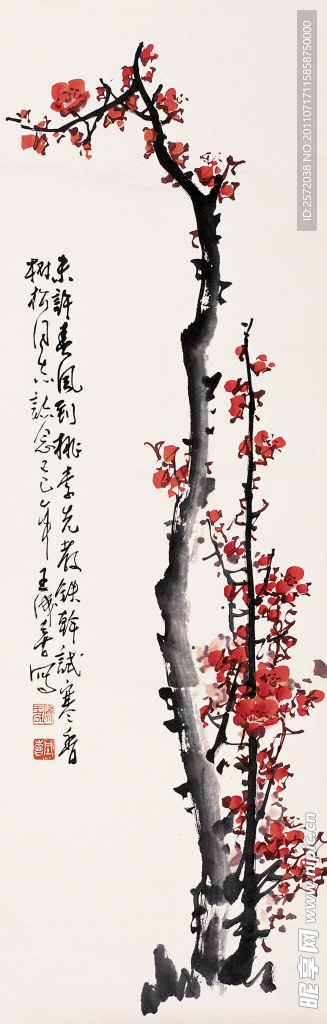 未許春風到桃李先教鉄幹試寒香
樹松同志詒念己巳年王成喜寫
ID:2572038 NO:20110717115858750000
昵享网 www.nipic.cn